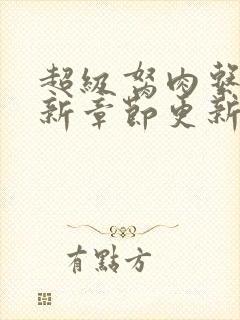 超級房肉系
新章節更新
有點方